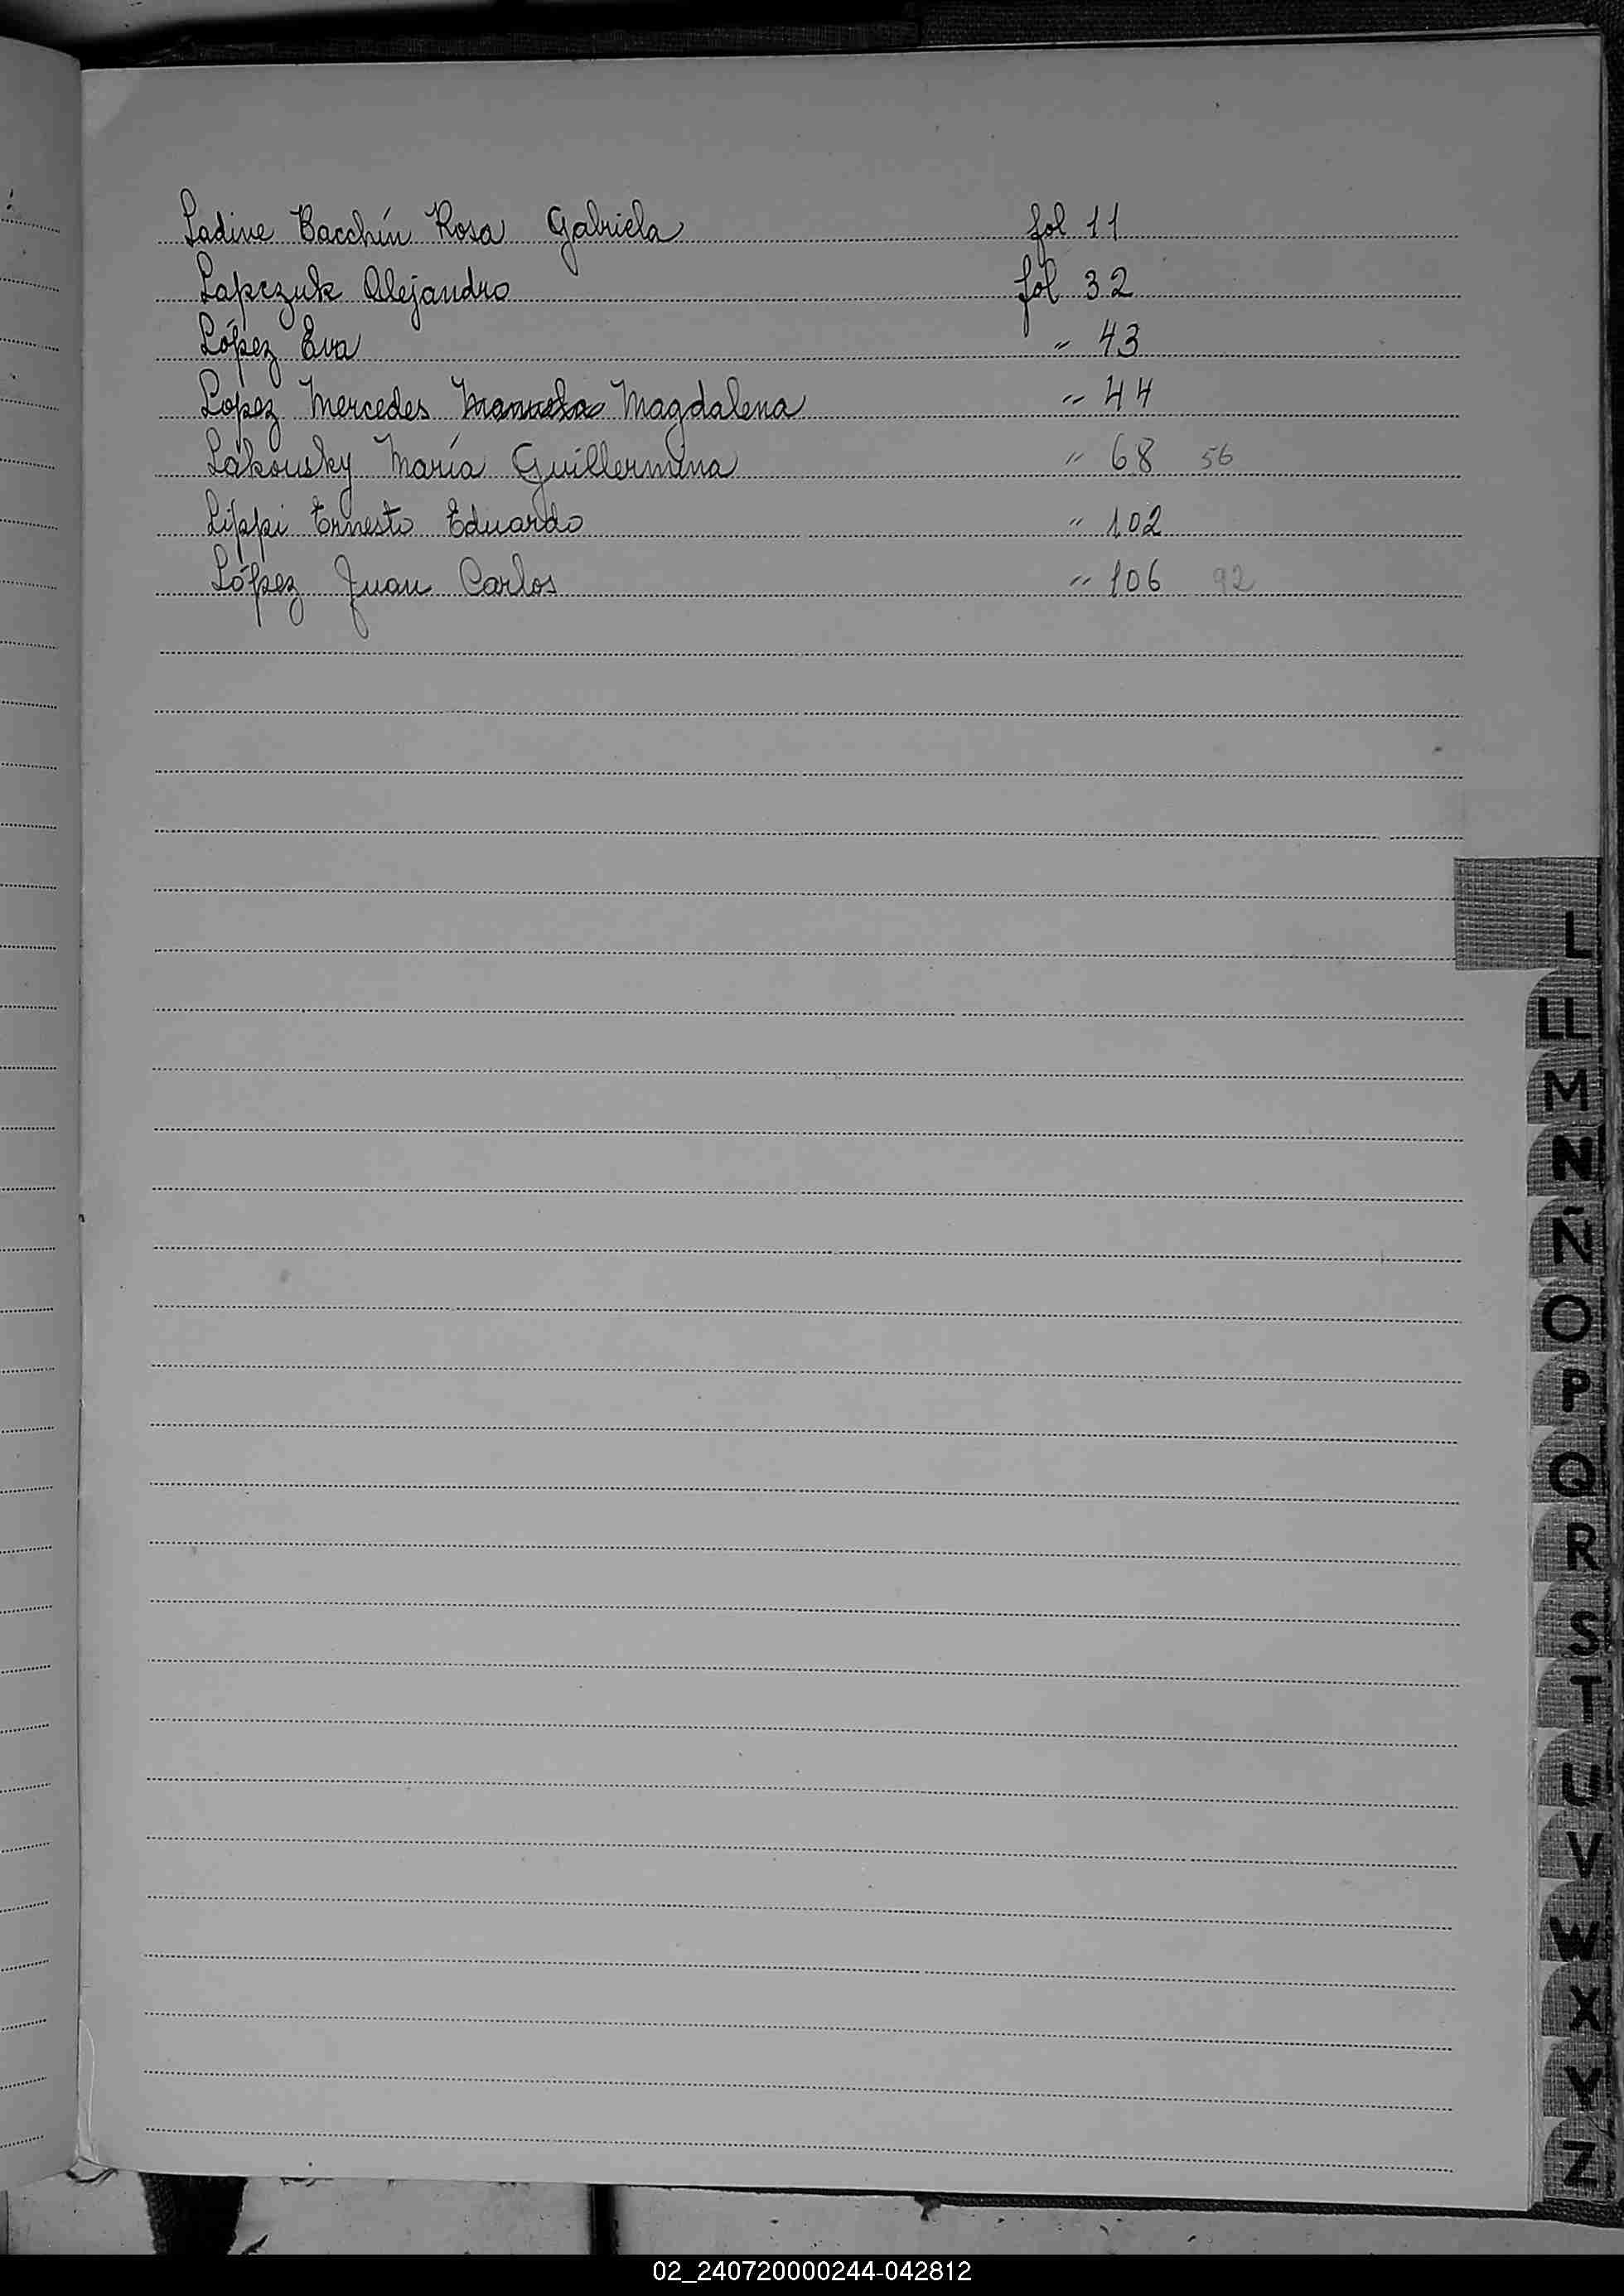 Ladine Bacchín Rosa Gabriela fol 11
Lapczuk Alejandro fol 32
López Eva " 43
Lopez Mercedes Manuela Magdalena " 44
Lakousky María Guillermina " 68 56
Lippi Ernesto Eduardo " 102
López Juan Carlos " 106 92
L
LL
M
N
Ñ
O
P
Q
R
S
T
U
V
W
X
Y
Z
02_240720000244-042812